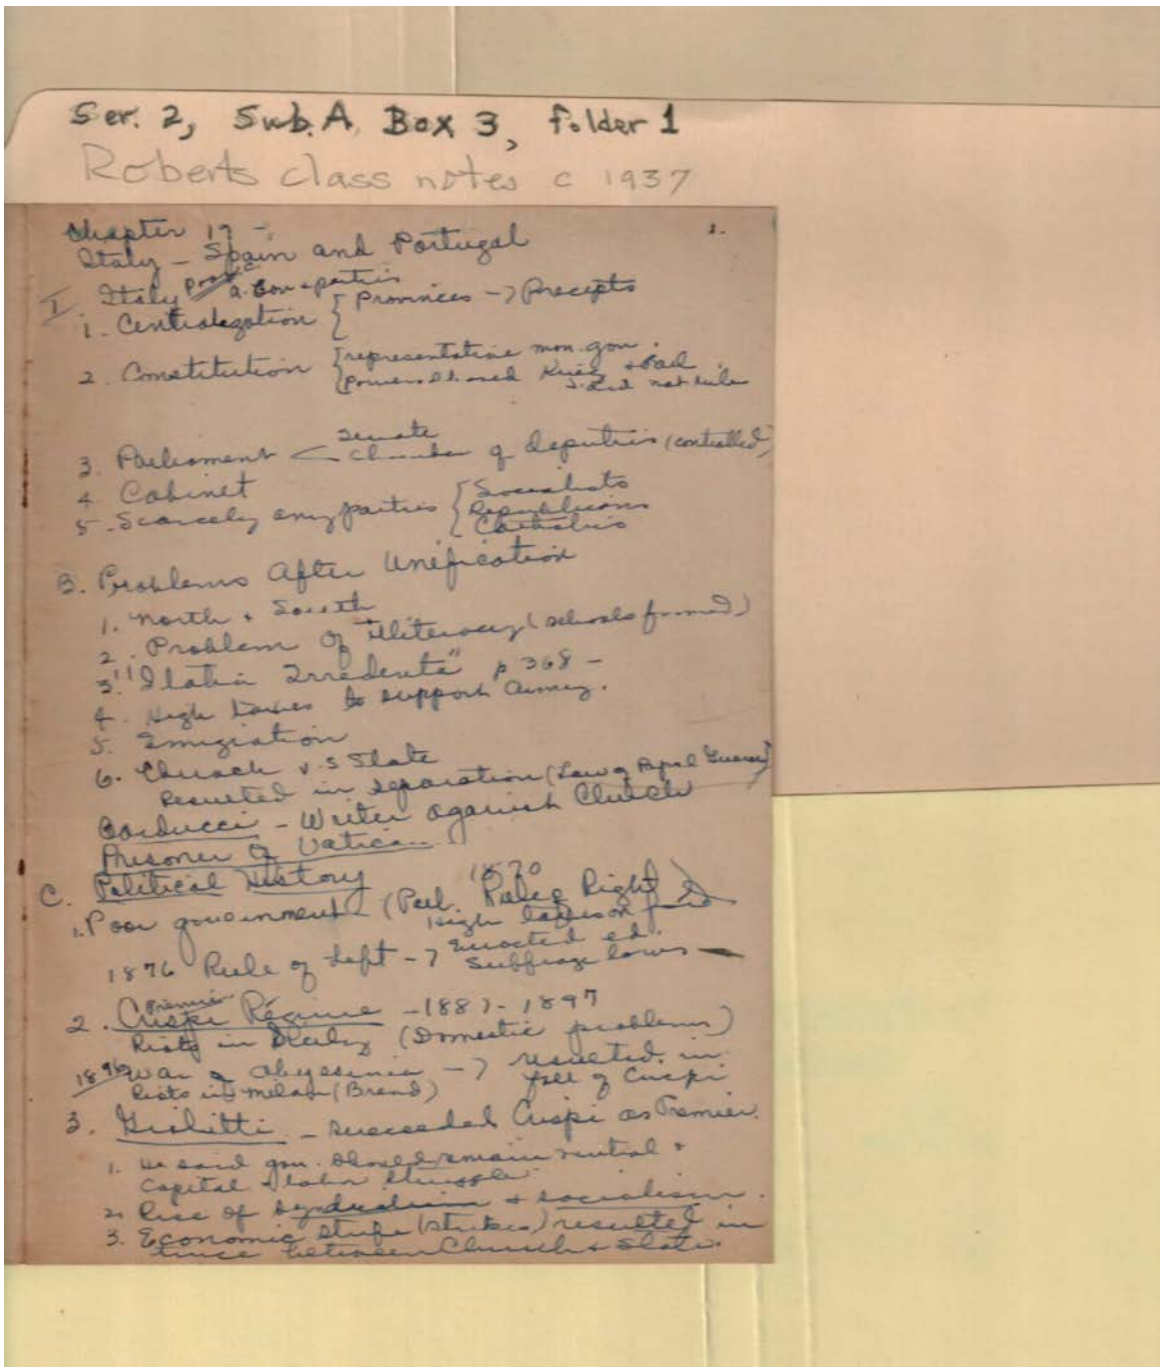 Ser. 2, Sub. A, Box 3, folder 1
Roberts class notes c 1937
1.
Chapter 17 -
Italy - Spain and Portugal
I. Italy
a. Gov + parties
1. Centralization { Provinces -> Precepts
2. Constitution { representative mon. gov.
{ powers shared King + Parl.
did not rule
3. Parliament < Senate
Chamber of deputies (controlled)
4 Cabinet
5. Scarcely any parties { Socialists
Republicans
Catholics
B. Problems After Unification
1. North + South
2. Problem of illiteracy (schools formed)
3. "Italia Irredenta" p 368 -
4. High taxes to support army.
5. Emigration
6. Church v.s State
Resulted in separation (Law of Papal Guaran)
Carducci - Writer against Church
Prisoner of Vatican
C. Political History
1870
1. Poor government (Parl. Rule Right
High taxes on food
1876 Rule of Left -> Enacted ed.
Suffrage laws
2. Crispi Régime - 1887 - 1897
Premier
Riots in Sicily (Domestic problems)
1896 War Abyssinia -> resulted in
fall of Crispi
Riots in Milan (Bread)
3. Giolitti - succeeded Crispi as Premier.
1. He said gov. should remain neutral
Capital + labor struggle.
2. Rise of syndicalism + socialism.
3. Economic strife (strikes) resulted in
truce between Church + State.